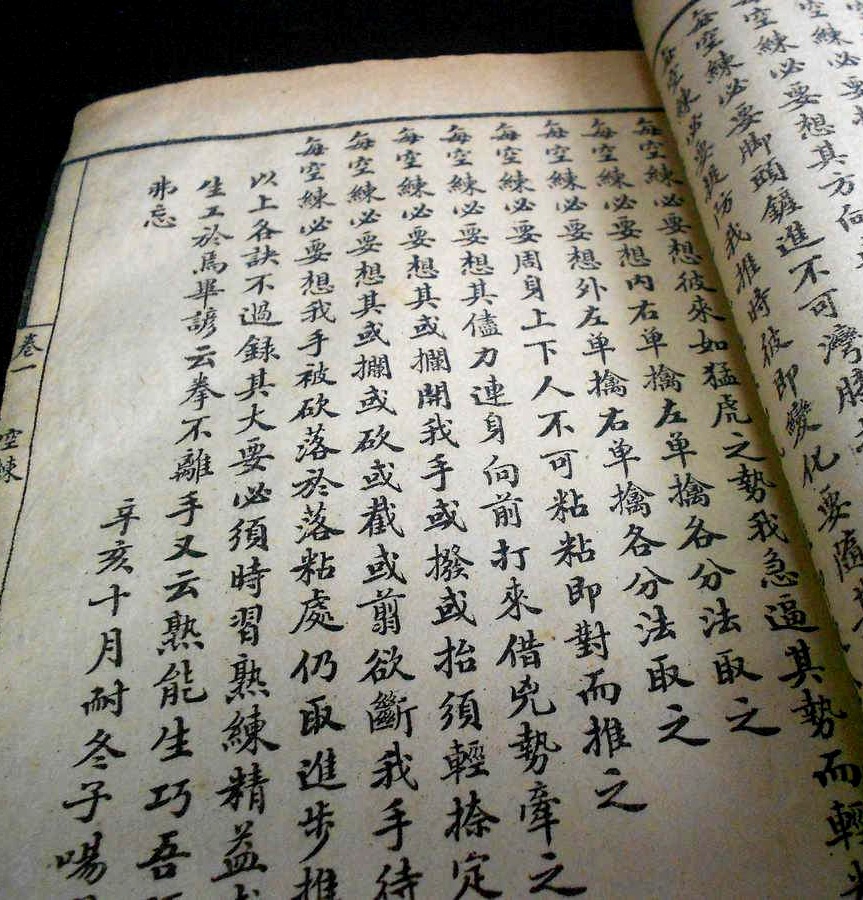 每空練必要想其方向
每空練必要脚頭䥥進不可灣膝
我推時彼即變化要
每空練必要想彼來如猛虎之勢我急逼其勢而輕
每空練必要想內右单擒左单擒各分法取之
每空練必要想外左单擒右单擒各分法取之
每空練必要周身上下人不可粘粘即對而推之
每空練必要想其儘力連身向前打來借兇勢牽之
每空練必要想其或攔開我手或撥或抬須輕捺定
每空練必要想其或攔或砍或截或剪欲斷我手待
每空練必要想我手被砍落於落粘處仍取進步推
以上各訣不過錄其大要必須時習熟練精益
生工於焉畢諺云拳不離手又云熟能生巧吾
弗忘
辛亥十月耐冬子喝
卷一
空練